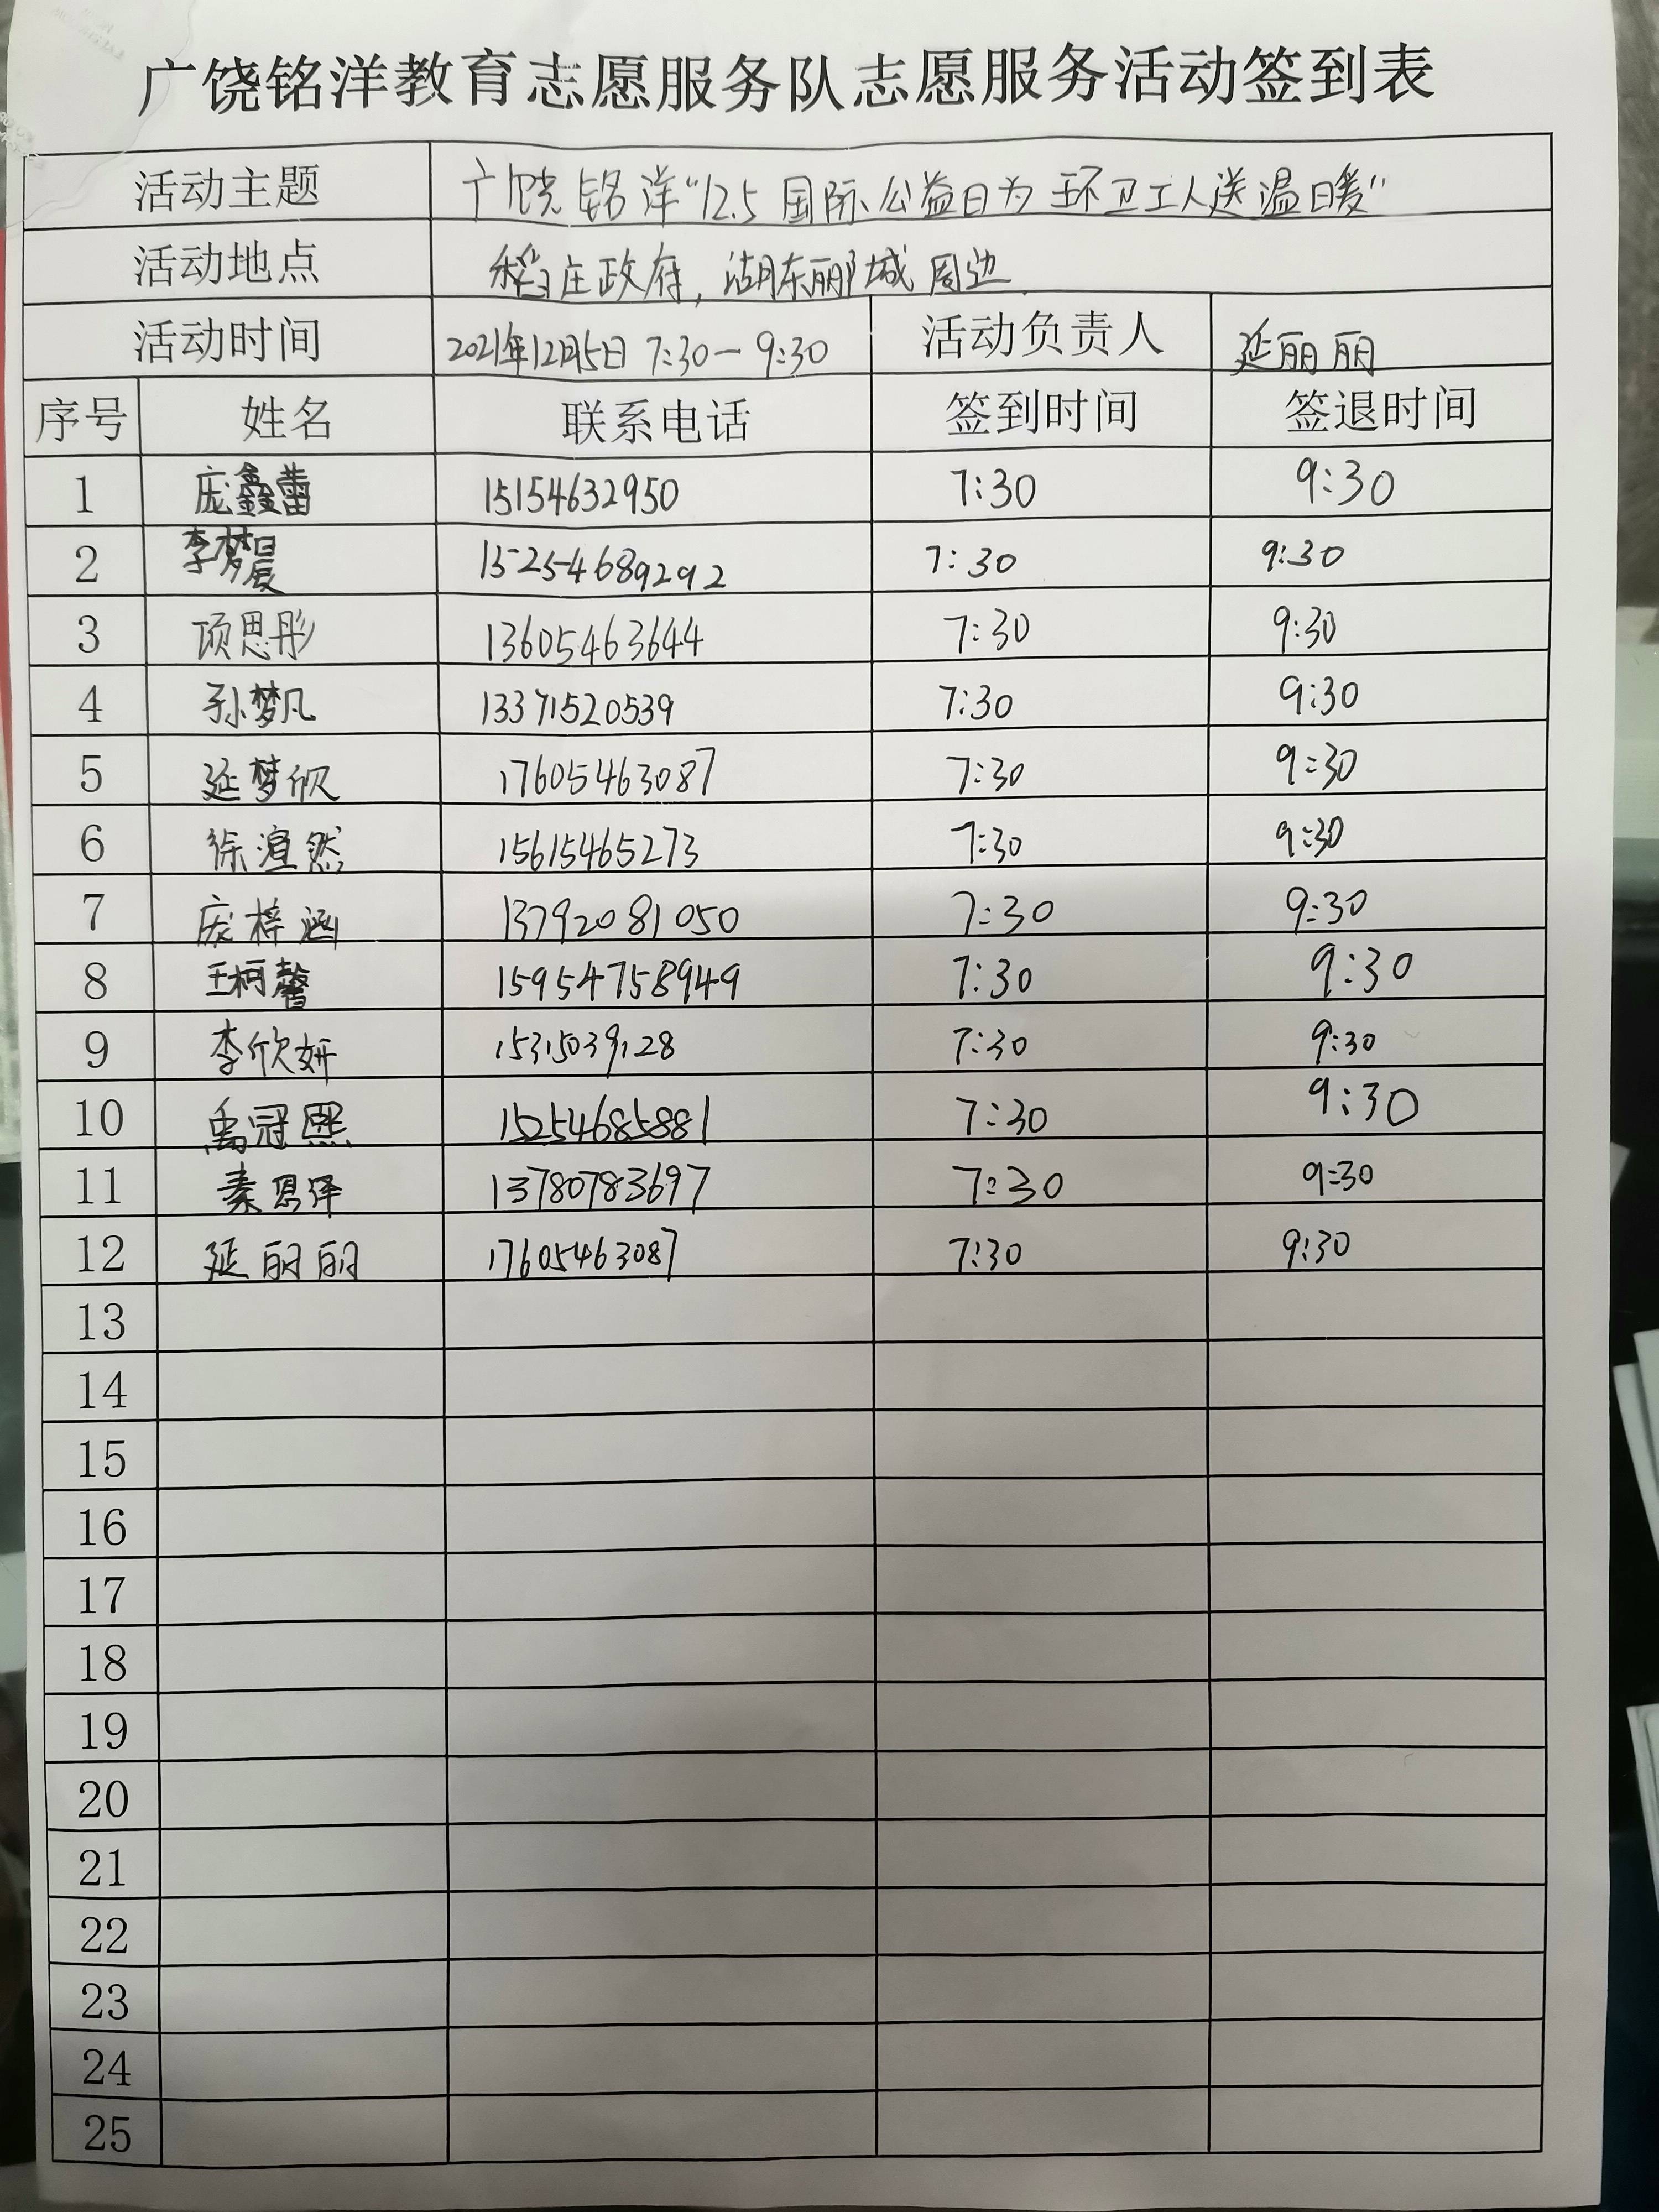 广饶铭洋教育志愿服务队志愿服务活动签到表
活动主题 广饶铭洋“12.5国际公益日为环卫工人送温暖”
活动地点 稻庄政府,湖东丽城周边
活动时间 2021年12月5日 7:30-9:30 活动负责人 延丽丽
序号 姓名 联系电话 签到时间 签退时间
1 庞鑫蕾 15154632950 7:30 9:30
2 李梦晨 15254689292 7:30 9:30
3 项思彤 13605463644 7:30 9:30
4 孙梦凡 13371520539 7:30 9:30
5 延梦欣 17605463087 7:30 9:30
6 徐渲然 15615465273 7:30 9:30
7 庞梓涵 13792081050 7:30 9:30
8 王柯馨 15954758949 7:30 9:30
9 李欣妍 15315039128 7:30 9:30
10 禹冠熙 15254685881 7:30 9:30
11 秦恩泽 13780783697 7:30 9:30
12 延丽丽 17605463087 7:30 9:30
13
14
15
16
17
18
19
20
21
22
23
24
25